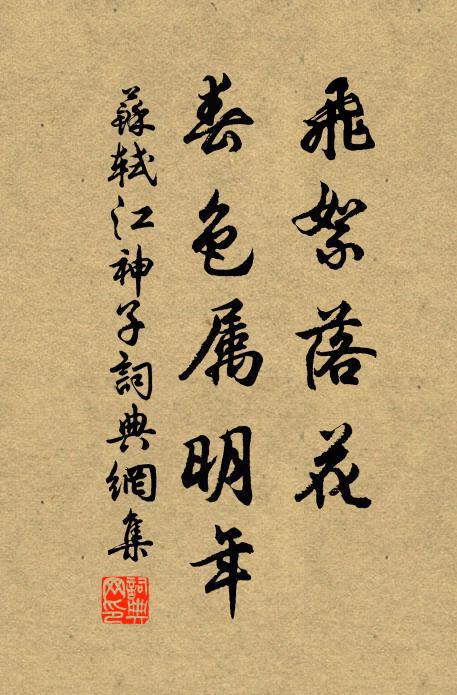 飛絮落花
春色属明年
蘇軾江神子詞典網集
詞典網印